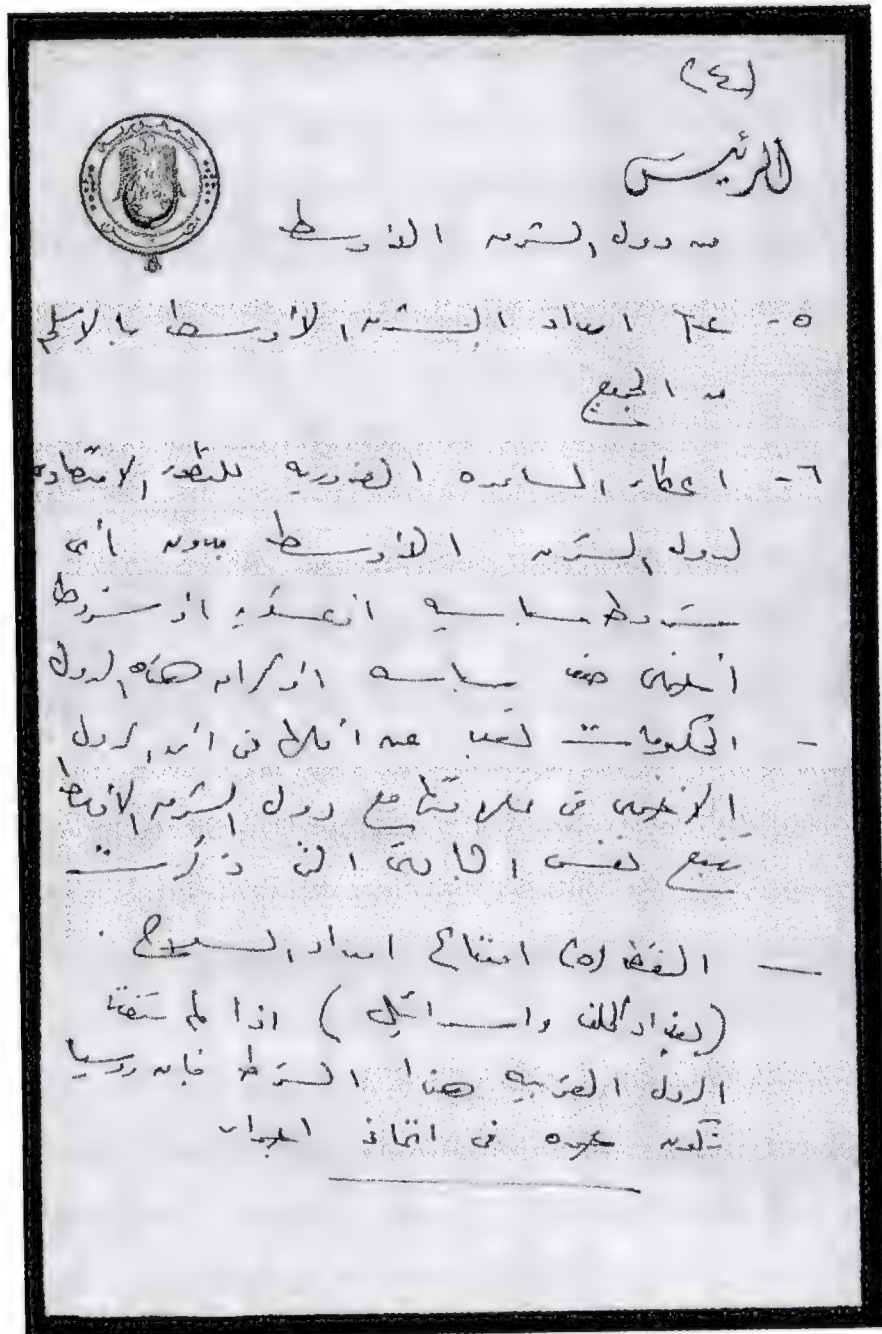 (٤)
الرئيس
جمهورية مصر
من دول الشرق الأوسط
٥- عدم امداد الشرق الأوسط بالاسلحة
من الجميع
٦- اعطاء المساعده الضروريه للتطور الاقتصادى
لدول الشرق الأوسط بدون أى
شروط سياسيه او عسكريه او شروط
أخرى سياسه هذه الدول
- الحكومات عن أملها فى ان الدول
الاخرى فى علاقتها مع دول الشرق الأوسط
تتبع نفس المبادئ التى ذكرت
— النقطه (٥) امتناع امداد السلاح .
(بغداد الحلف واسرائيل) اذا لم تنفذ
الدول الغربيه هذا الشرط فإن روسيا
تكون حره فى اتخاذ اجراء